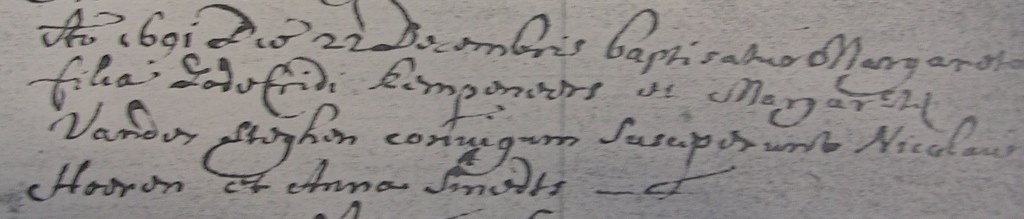 Ao 1691 Die 22 Decembris baptisatur Margareta
filia Godefridi Kempeneers et Margaretæ
Vander Steghen coniugum Susceperunt Nicolaus
Heeren et Anna Smedts